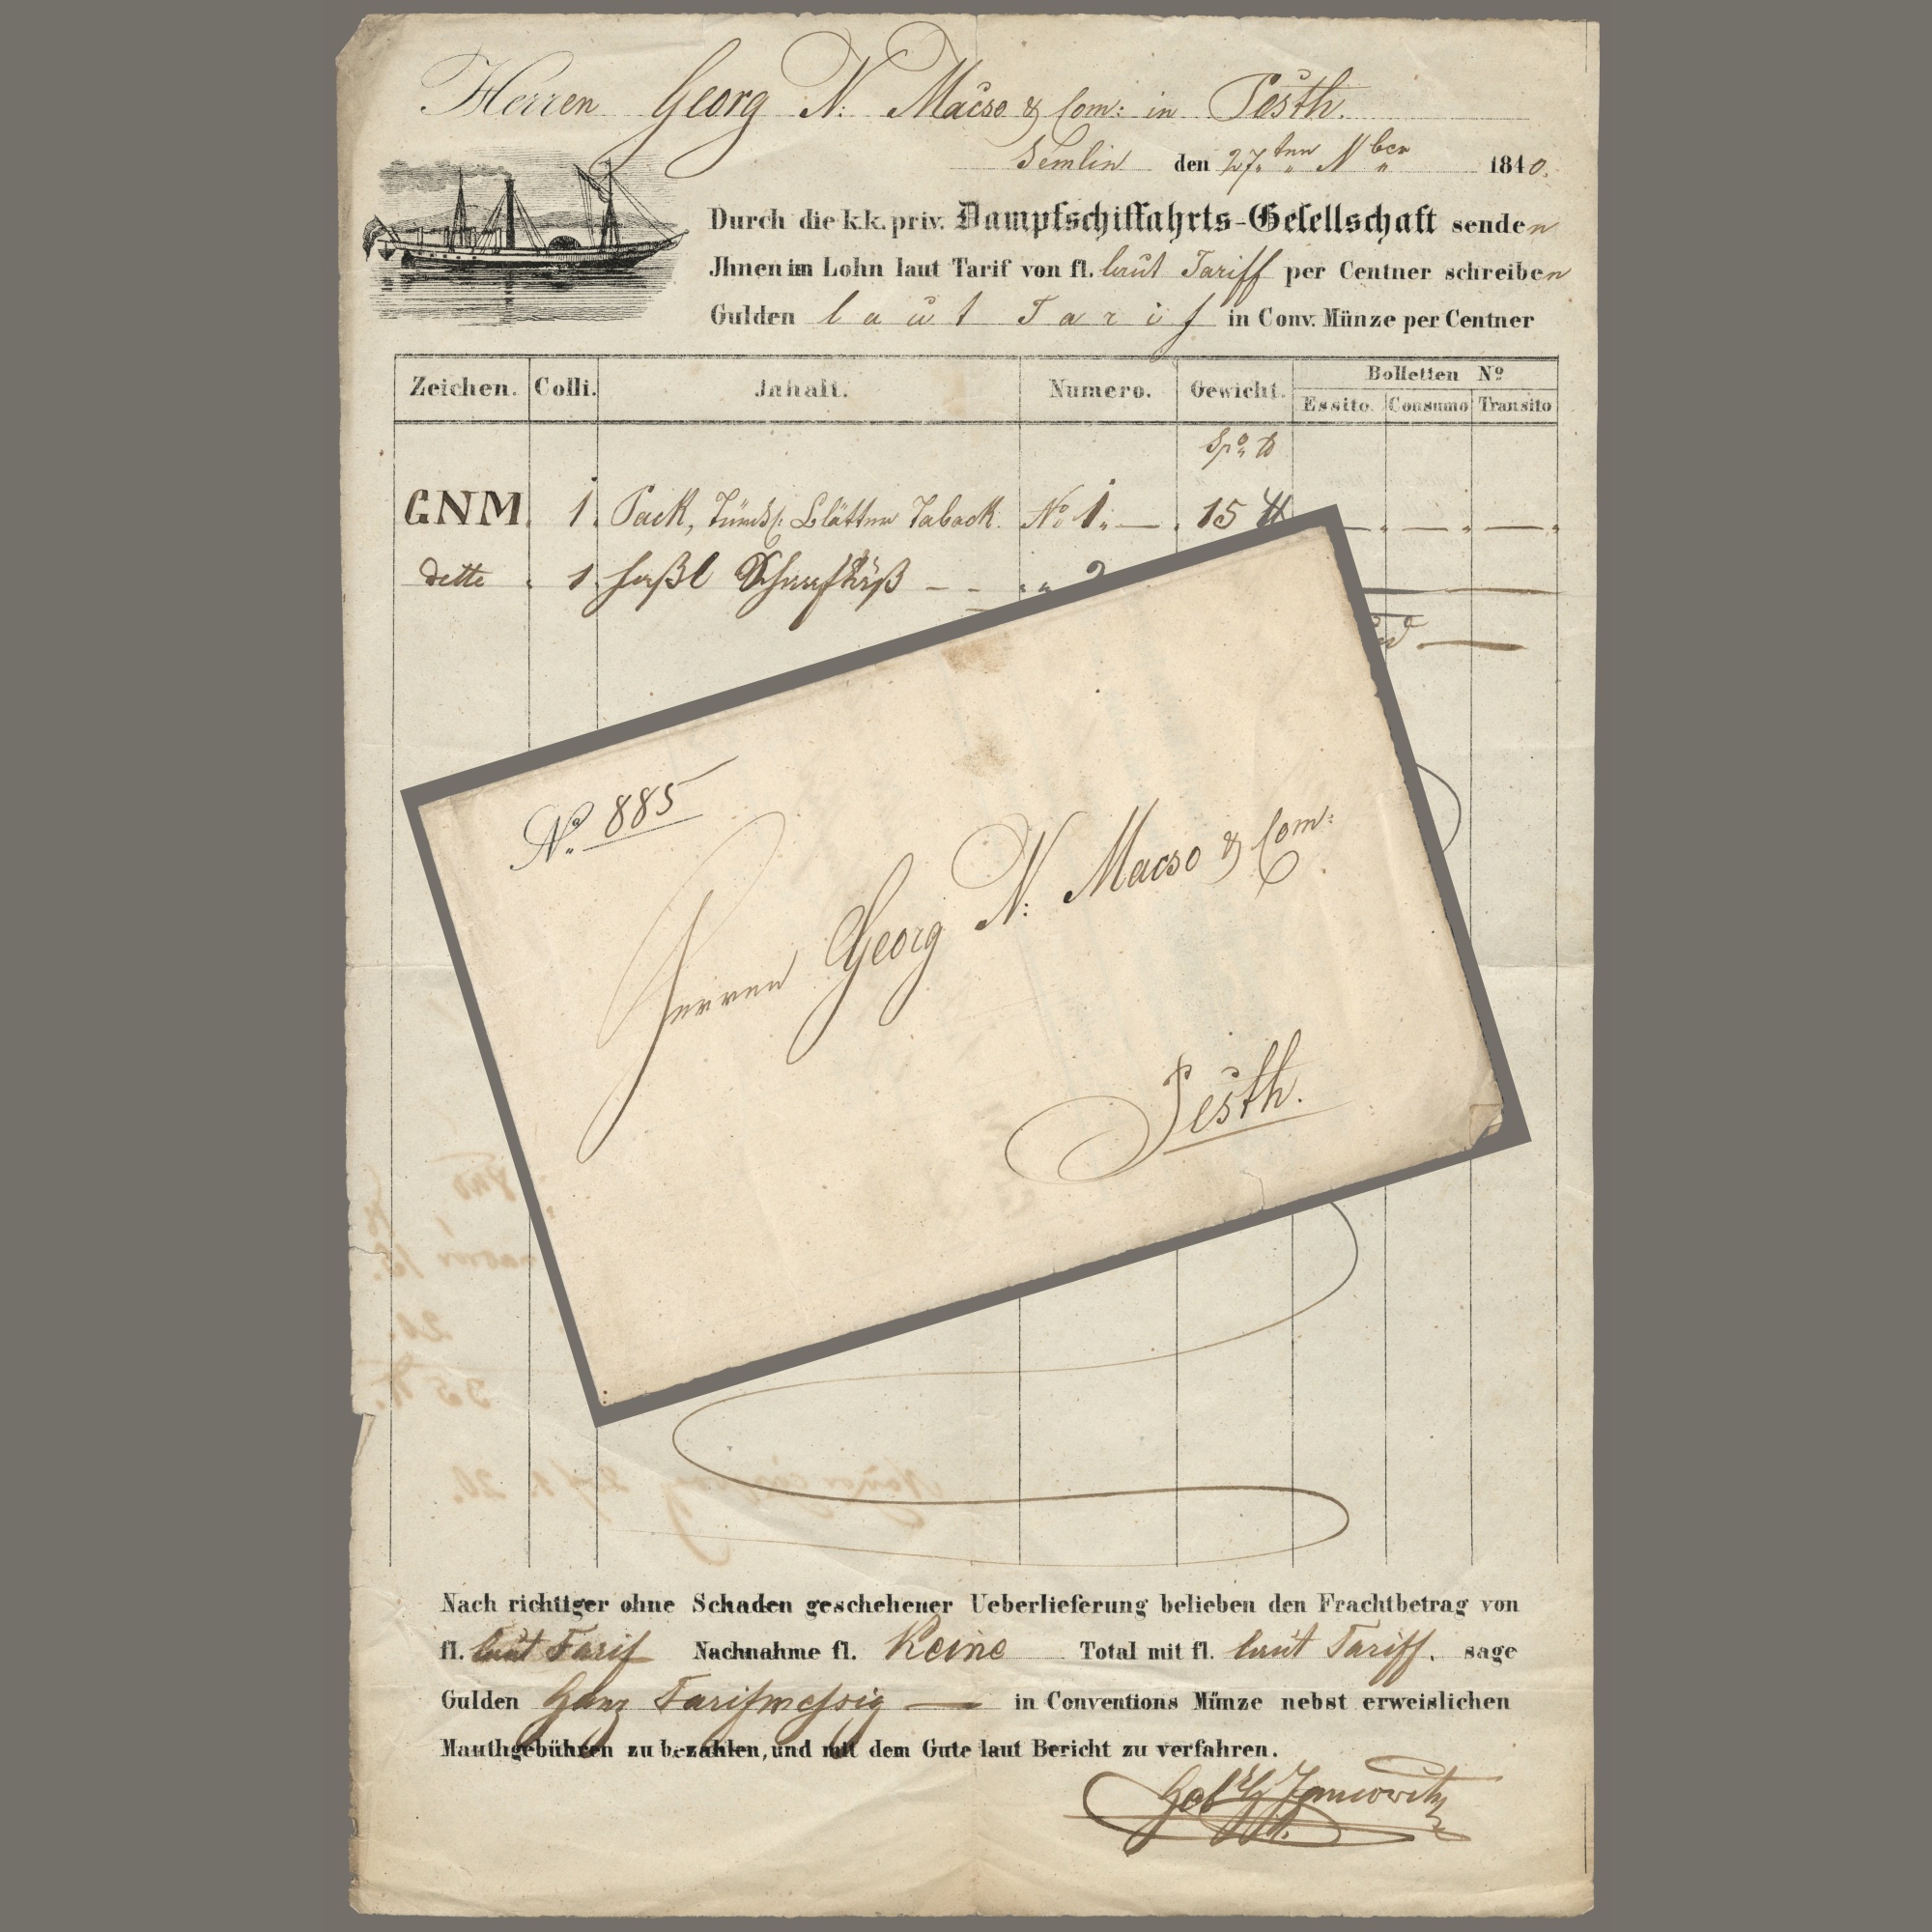 Herren Georg N: Macso & Com: in Pesth.
Semlin den 27ten Nber 1840.
Durch die k.k. priv. Dampfschiffahrts-Gesellschaft senden
Jhnen im Lohn laut Tarif von fl. laut Tariff per Centner schreiben
Gulden laut Tarif in Conv. Münze per Centner
Zeichen. Colli. Jnhalt. Numero. Gewicht. Bolletten No
Essito. Consumo Transito
Spo
GNM. 1. Pack, Blätter Taback. No 1. 15
detto 1 faßl Schaafkäß 2
No. 885
Herren Georg N: Macso & Com:
Pesth.
Nach richtiger ohne Schaden geschehener Ueberlieferung belieben den Frachtbetrag von
fl. laut Tarif Nachnahme fl. Keine Total mit fl. laut Tariff. sage
Gulden Ganz Tarifmessig in Conventions Münze nebst erweislichen
Mauthgebühren zu bezahlen, und mit dem Gute laut Bericht zu verfahren.